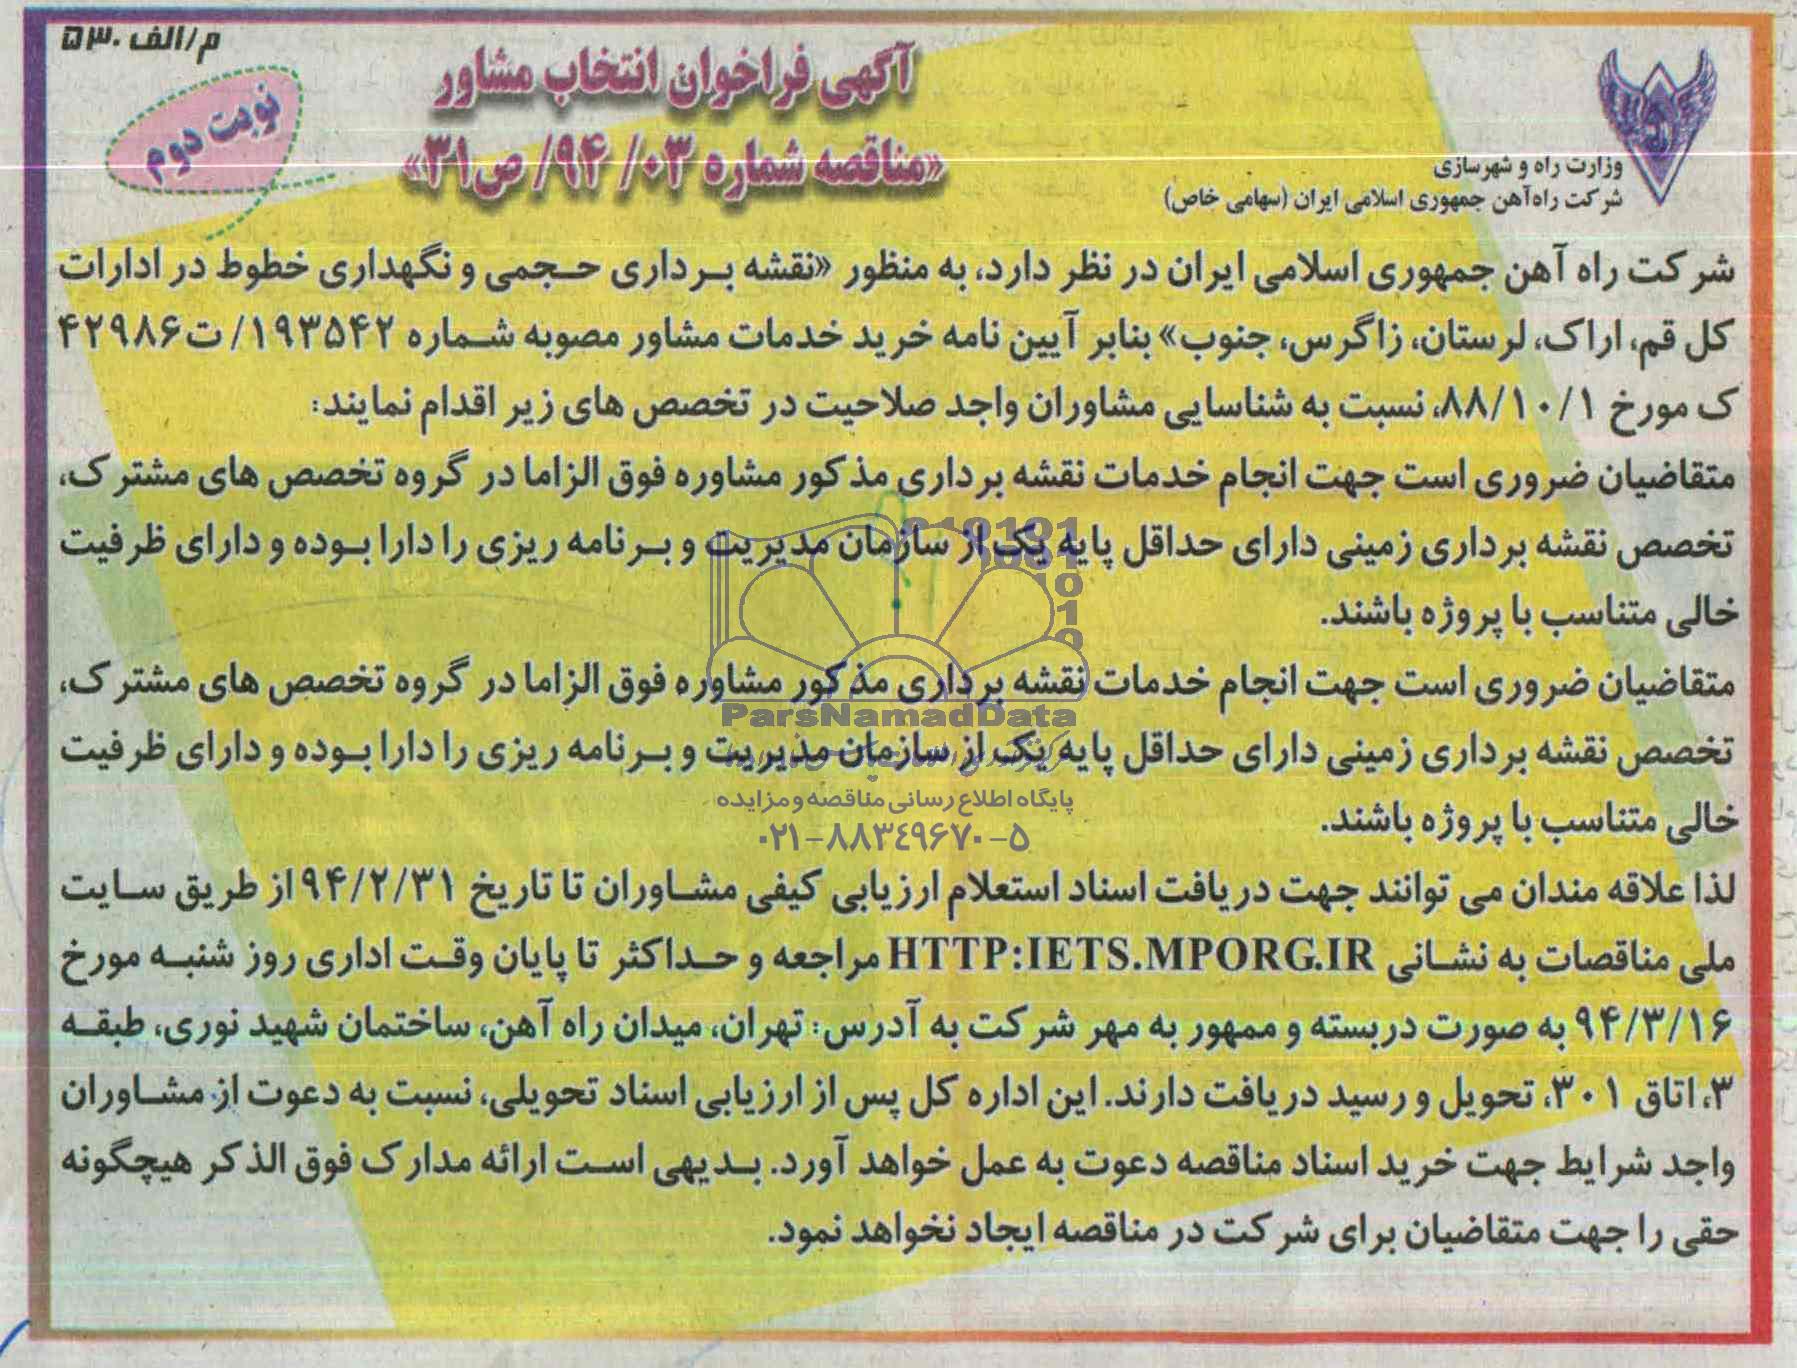 م/الف ۵۳۰
نوبت دوم
آگهی فراخوان انتخاب مشاور
«مناقصه شماره ۰۳/ ۹۴/ ص۳۱»
وزارت راه و شهرسازی
شرکت راه‌آهن جمهوری اسلامی ایران (سهامی خاص)
شرکت راه آهن جمهوری اسلامی ایران در نظر دارد، به منظور «نقشه برداری حجمی و نگهداری خطوط در ادارات
کل قم، اراک، لرستان، زاگرس، جنوب» بنابر آیین نامه خرید خدمات مشاور مصوبه شماره ۱۹۳۵۴۲/ ت۴۲۹۸۶
ک مورخ ۸۸/۱۰/۱، نسبت به شناسایی مشاوران واجد صلاحیت در تخصص های زیر اقدام نمایند:
متقاضیان ضروری است جهت انجام خدمات نقشه برداری مذکور مشاوره فوق الزاما در گروه تخصص های مشترک،
تخصص نقشه برداری زمینی دارای حداقل پایه یک از سازمان مدیریت و برنامه ریزی را دارا بوده و دارای ظرفیت
خالی متناسب با پروژه باشند.
متقاضیان ضروری است جهت انجام خدمات نقشه برداری مذکور مشاوره فوق الزاما در گروه تخصص های مشترک،
تخصص نقشه برداری زمینی دارای حداقل پایه یک از سازمان مدیریت و برنامه ریزی را دارا بوده و دارای ظرفیت
خالی متناسب با پروژه باشند.
لذا علاقه مندان می توانند جهت دریافت اسناد استعلام ارزیابی کیفی مشاوران تا تاریخ ۹۴/۲/۳۱ از طریق سایت
ملی مناقصات به نشانی HTTP:IETS.MPORG.IR مراجعه و حداکثر تا پایان وقت اداری روز شنبه مورخ
۹۴/۳/۱۶ به صورت دربسته و ممهور به مهر شرکت به آدرس: تهران، میدان راه آهن، ساختمان شهید نوری، طبقه
۳، اتاق ۳۰۱، تحویل و رسید دریافت دارند. این اداره کل پس از ارزیابی اسناد تحویلی، نسبت به دعوت از مشاوران
واجد شرایط جهت خرید اسناد مناقصه دعوت به عمل خواهد آورد. بدیهی است ارائه مدارک فوق الذکر هیچگونه
حقی را جهت متقاضیان برای شرکت در مناقصه ایجاد نخواهد نمود.
ParsNamadData
پایگاه اطلاع رسانی مناقصه و مزایده
۰۲۱-۸۸۳۴۹۶۷۰-۵